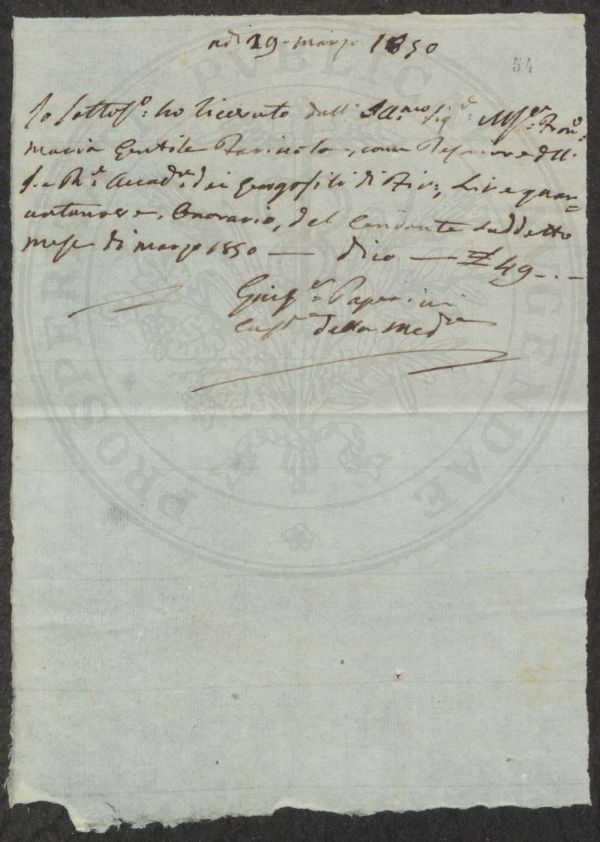 adì 29. marzo 1850
54
Io sottos.o: ho ricevuto dall' Ill.mo Sig.e March.e Fran.o
Maria Gentile Farinola, come Tesoriere dell
I. e R.e Accad.a dei Georgofili di Fir:, Lire quar=
antanove, Onorario, del cendente suddetto
mese di marzo 1850 — dico — £ 49 -. -
Gius.e Paperini
Cust.e della Med.a
PROSPERITATI PUBLICAE AUGENDAE